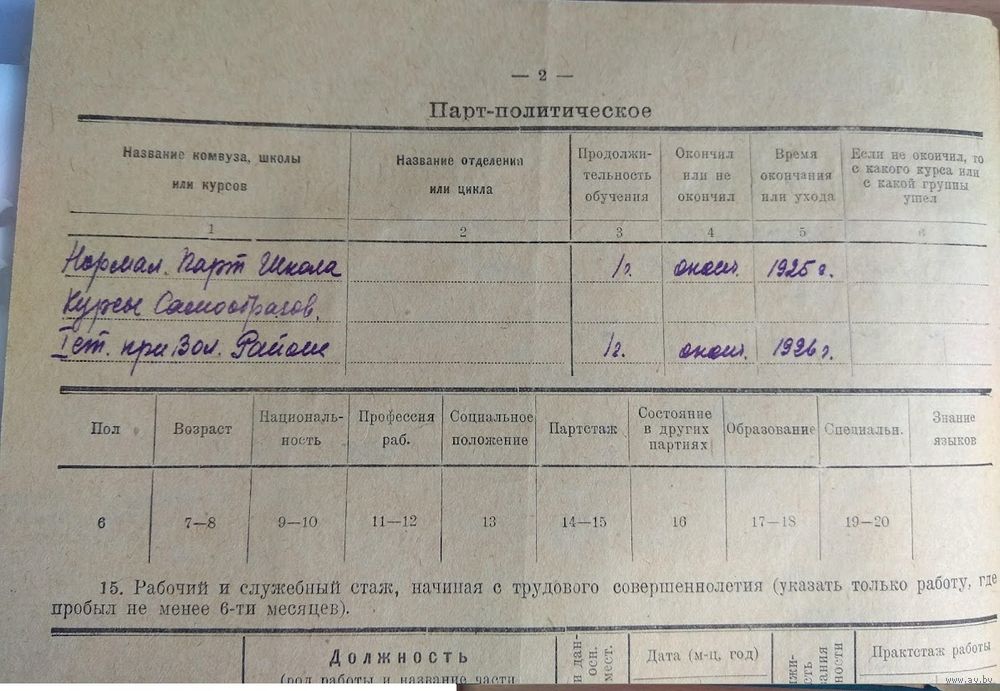 — 2 —
Парт-политическое
Название комвуза, школы или курсов
Название отделения или цикла
Продолжи-тельность обучения
Окончил или не окончил
Время окончания или ухода
Если не окончил, то с какого курса или с какой группы ушел
1 2 3 4 5 6
Нормал. Парт Школа 1г. оконч. 1925 г.
Курсы
Iст. при Вол. Райкоме 1г. оконч. 1926 г.
Пол
Возраст
Националь-ность
Профессия раб.
Социальное положение
Партстаж
Состояние в других партиях
Образование
Специальн.
Знание языков
6 7—8 9—10 11—12 13 14—15 16 17—18 19—20
15. Рабочий и служебный стаж, начиная с трудового совершеннолетия (указать только работу, где
пробыл не менее 6-ти месяцев).
Должность
(род работы и название части
и дан-
осн.
мест.
Дата (м-ц, год)
жи-
сть
вания
ности
Практстаж работы
www.av.by